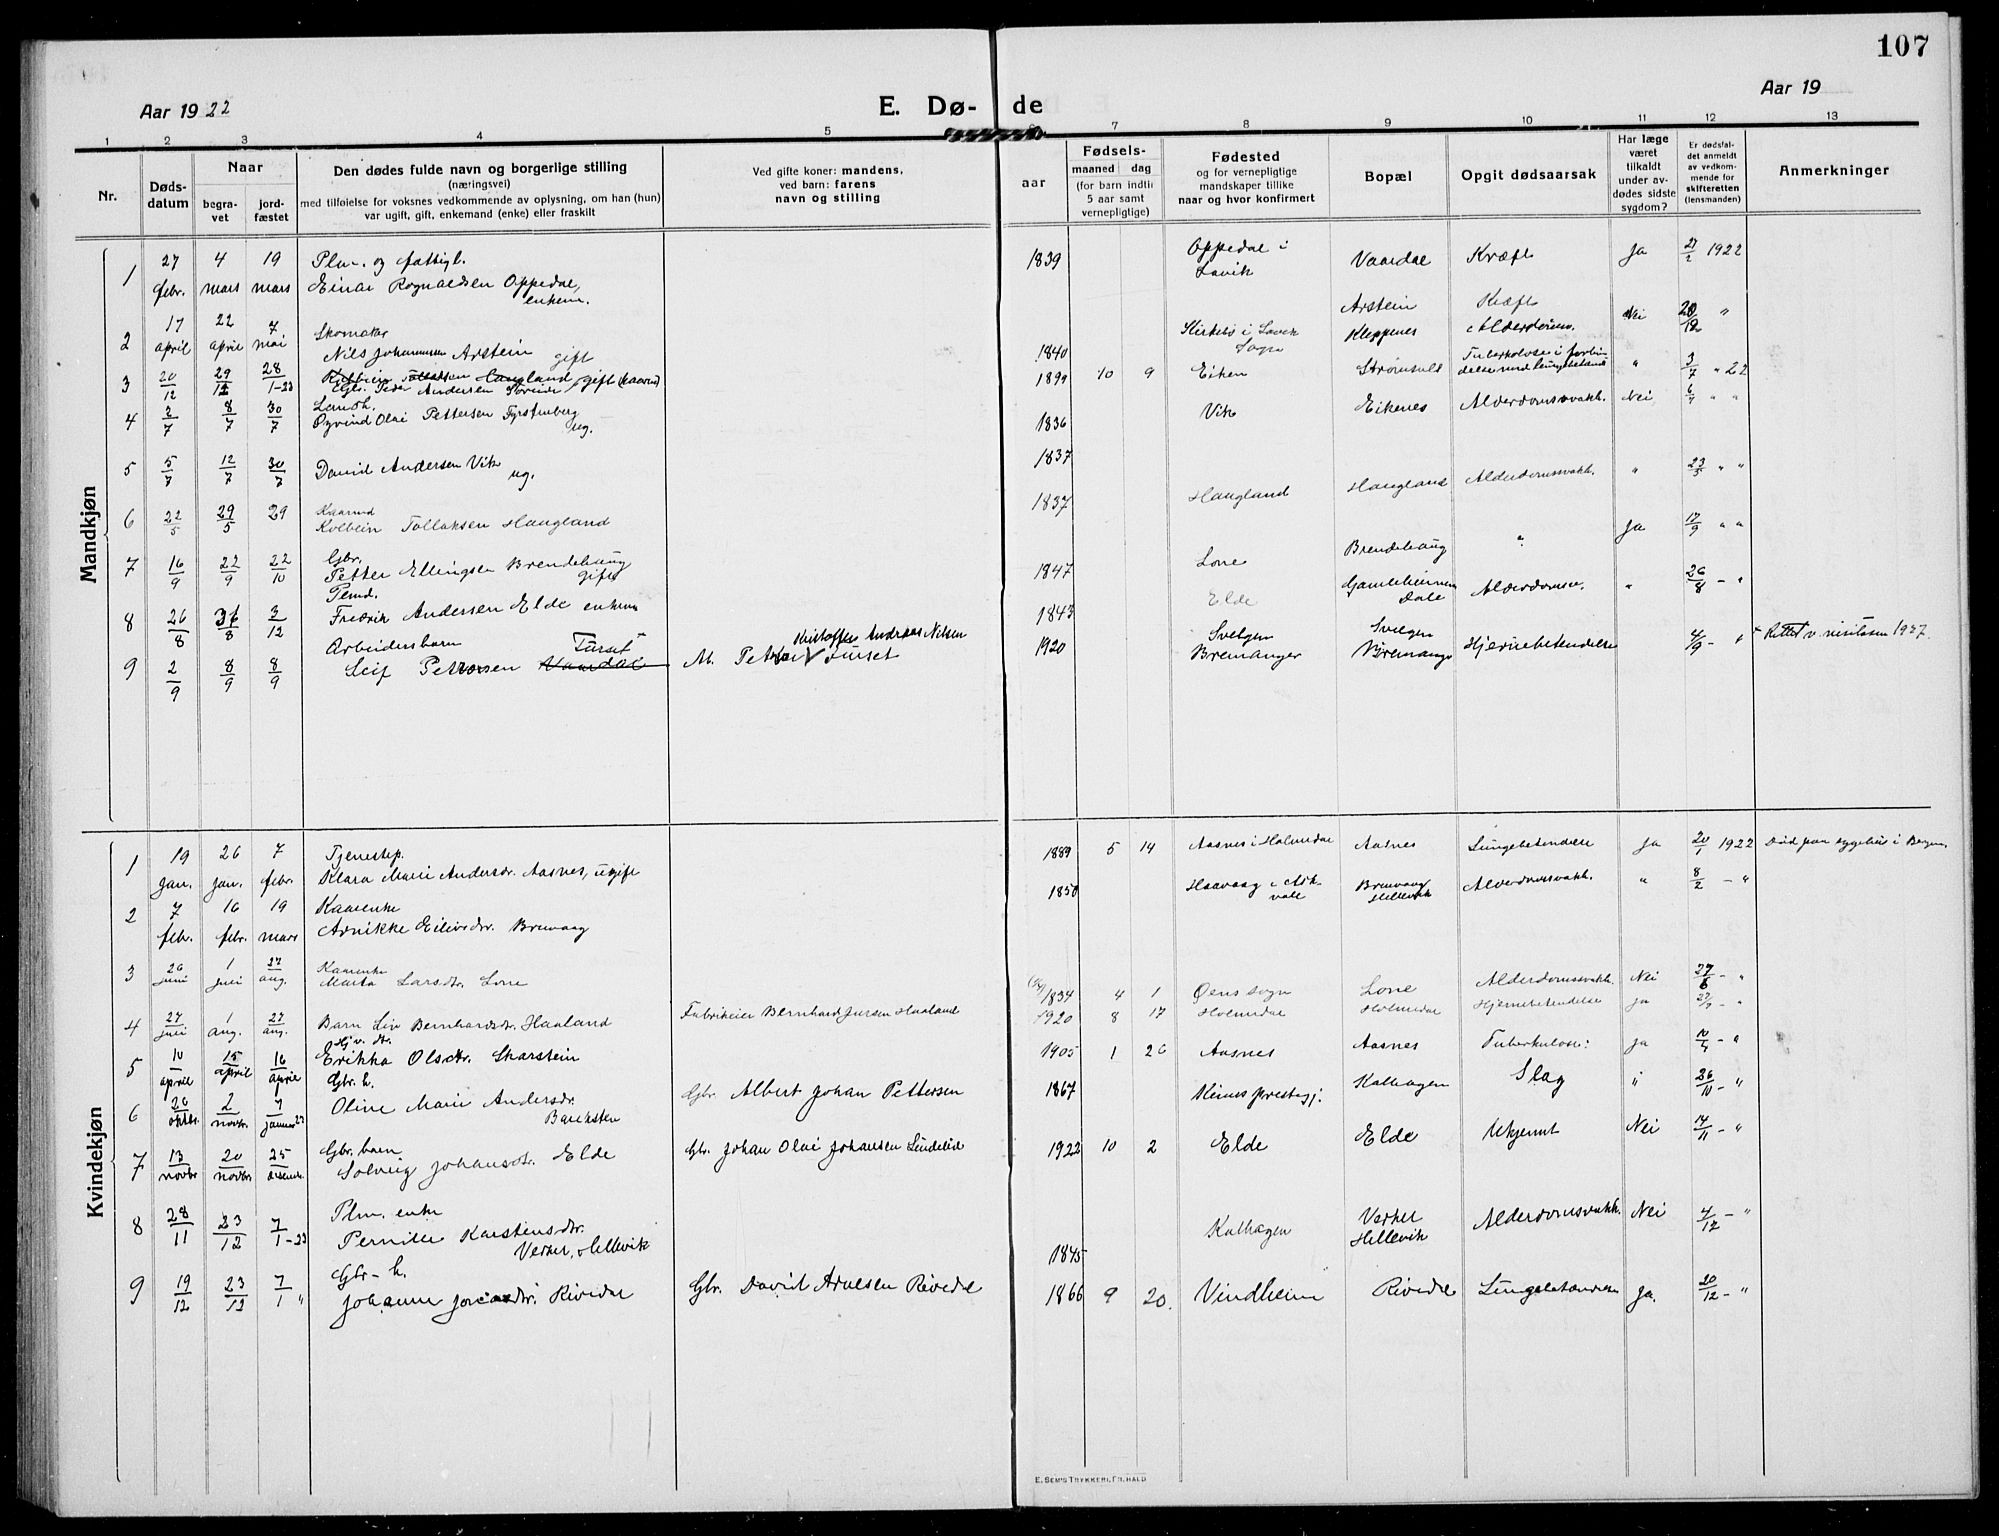 107
Aar 1922
E. Dø- de
Aar 19
1 2 3 4 5 6 7 8 9 10 11 12 13
Nr.
Døds-
datum
Naar
begra-
vet
jord-
fæstet
Den dødes fulde navn og borgerlige stilling
(næringsvei)
med tilføielse for voksnes vedkommende av oplysning, om han (hun)
var ugift, gift, enkemand (enke) eller fraskilt
Ved gifte koner: mandens,
ved barn: farens
navn og stilling
Fødsels-
aar
maaned dag
(for barn indtil
5 aar samt
vernepligtige)
Fødested
og for vernepligtige
mandskaper tillike
naar og hvor konfirmert
Bopæl
Opgit dødsaarsak
Har læge
været
tilkaldt
under av-
dødes sidste
sygdom?
Er dødsfal-
det anmeldt
av vedkom-
mende for
skifteretten
(lensmanden)
Anmerkninger
Mandkjøn
1 27 febr. 4 mars 19 mars Plm. og fattigl. Einar Rognaldsen Oppedal, enkem. 1839 Oppedal i Lavik Vaardal Kræft Ja 27/2 1922
2 17 april 22 april 7 mai Skomaker Nils Johannesen Arstein gift 1840 Kirkebø i Lavik Sogn Arstein Kleppenes Kræft Alderdoms. Nei "
3 20/12 29/12 28/1-23 Kolbein Tollaksen Haugland, gift (kaarm) Gbr. Peder Andersen 1899 10 9 Eiken Strømsvold Tuberkulose i forbindelse med lungebetænd "
4 2/7 8/7 30/7 Øyvind Olai Pettersen Fyrstenberg ug. 1836 Vik Eikenes Alderdomssvakh. Nei " "
5 5/7 12/7 30/7 Daniel Andersen Vik ug. 1837
6 22/5 29/5 29 Kaarmd Kolbein Tollaksen Haugland 1837 Haugland Haugland Alderdomssvakh. " " "
7 16/9 22/9 22/10 Gbr. Petter Ellingsen Brendehaug gift 1847 Lone Brendehaug " Ja 17/9 " "
8 26/8 31/8 3/12 Fredrik Andersen Elde enkem 1843 Elde Gamleheimen Dale Alderdomsv. " 26/8 - "
9 2/9 8/9 8/9 Arbeidersbarn Leif Pettersen Vaardal Furset M. Petter Furset Kristoffer Andreas Nilsen 1920 Svelgen Bremanger Svelgen Bremanger Hjernebetendelse 4/9 - " Rettet v. visitasen 1927.
Kvindekjøn
1 19 jan. 26 jan. 7 febr. Tjenestep. Klara Marie Andersdr. Aasnes, ugift 1889 5 14 Aasnes i Holmedal Aasnes Lungebetendelse Ja 20/1 1922 Død paa sygehus i Bergen
2 7 febr. 16 febr. 19 mars Kaarenke Arnikke Eilivsdr. Bruvaag 1850 Haavaag i Askvoll Bruvaag Hillevik Alderdomssvakh. " 8/2 - "
3 26 juni 1 juli 27 aug. Kaarenke Marta Larsdtr. Lone 1834 4 1 Øens sogn Lone Alderdomssvakh. Nei 27/6 - "
4 27 juli 1 aug. 27 aug. Barn Liv Bernhardsdr. Haaland Fabrikeier Bernhard Jursen Haaland 1920 8 17 Holmedal Holmedal Hjernebetendelse Ja - "
5 10 april 15 april 16 april Hjv. dtr. Erikka Olsdtr. Skarstein 1905 1 26 Aasnes Aasnes Tuberkulose Ja 10/4 - "
6 26 oktbr. 2 novbr. 7 januar 23 Gbr. h. Oline Marie Andersdr. Bauksten Gbr. Albert Johan Pettersen 1867 Kinns prestegj. Kalhagen Slag " 26/10 - "
7 13 novbr 20 novbr 25 Gbr. barn Solveig Johansdtr. Elde Gbr. Johan Olai Johansen Lindelid 1922 10 2 Elde Elde Ukjennt Nei 14/11 - "
8 28/11 23/12 7/1-23 Plm. enke Pernille Karstensdtr. Verket, Hillevik 1845 Kalhagen Verket Hillevik Alderdomssvakh. Nei 4/12 - "
9 19/12 23/12 7/1 " Gbr-h. Johanne Rivedal Gbr. David Arnesen Rivedal 1866 9 20. Vindheim Rivedal Lungebetændelse Ja. 20/12 - "
E. SEM'S TRYKKERI, FR.HALD